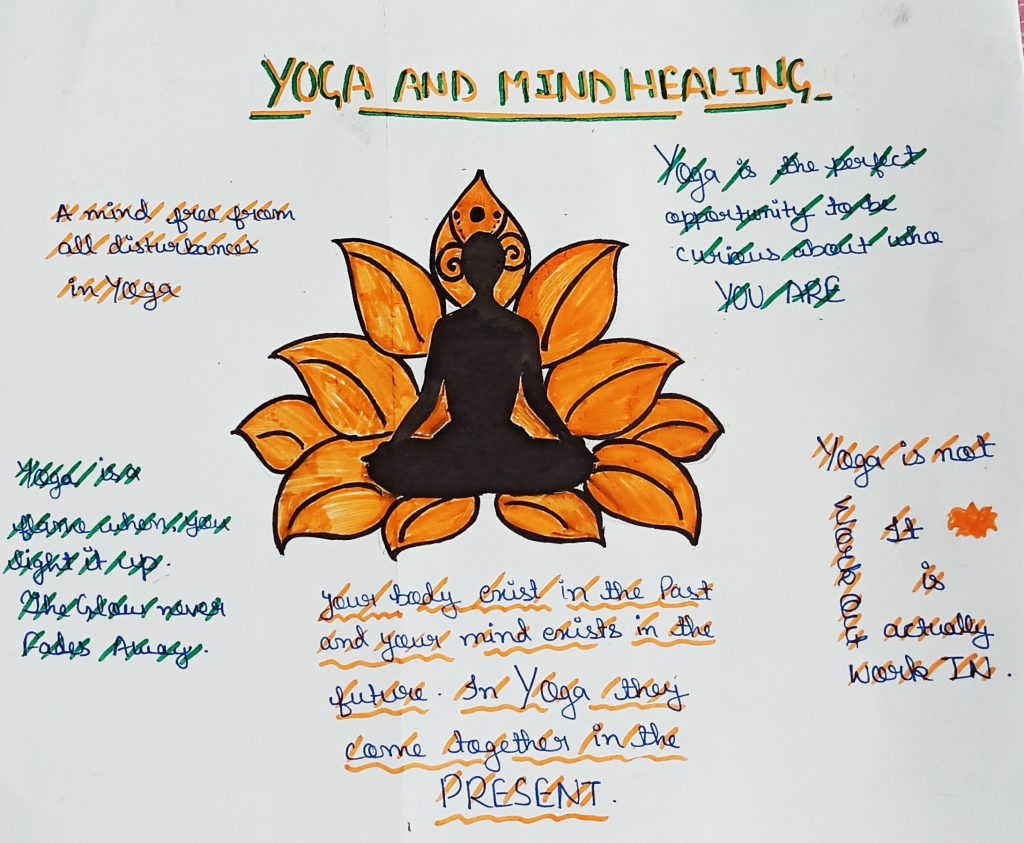 YOGA AND MIND HEALING
A mind free from
all disturbances
in Yoga
Yoga is the perfect
opportunity to be
curious about who
YOU ARE
Yoga is a
flame when, you
light it up.
The Glow never
Fades Away.
Yoga is not
Work Out
It
is
actually
Work IN.
your body exist in the Past
and your mind exists in the
future. In Yoga they
come together in the
PRESENT.